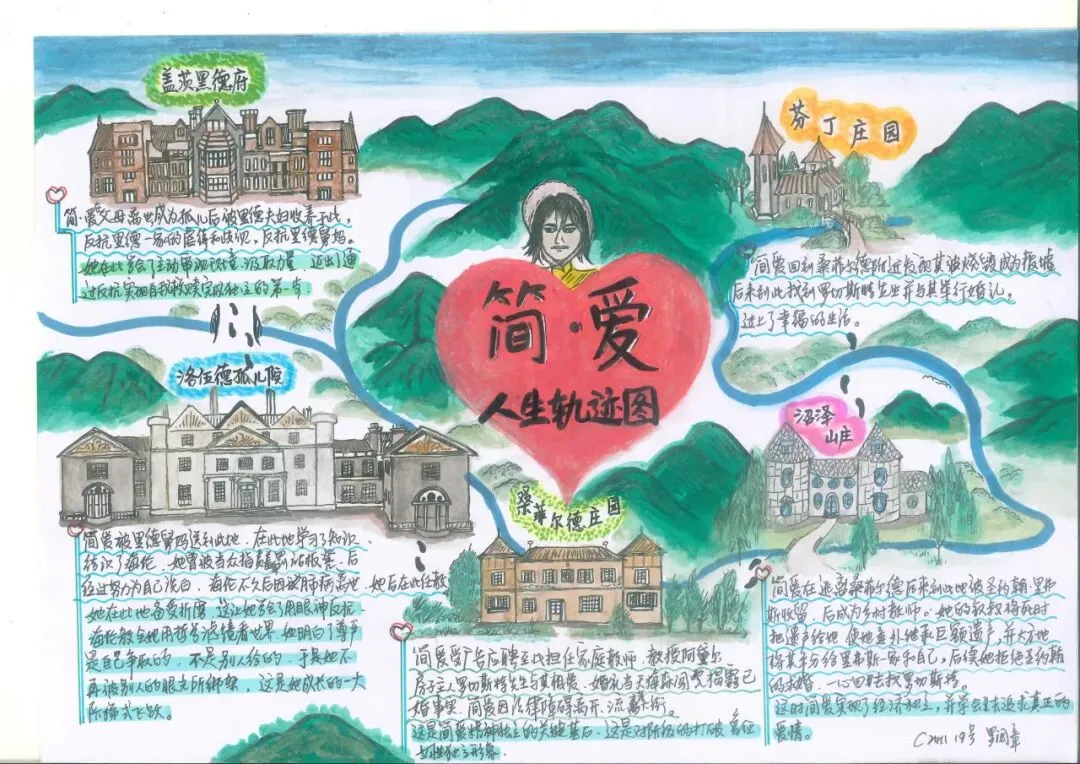 盖茨黑德府
简·爱父母离世成为孤儿后被里德夫妇收养于此,
反抗里德一家的虐待和歧视,反抗里德舅妈。
她在此学会了主动审视孩童 汲取力量 迈出了通
过反抗实现自我救赎完成独立的第一步.
洛伍德孤儿院
简爱被里德舅妈送到此地.在此地学习了知识.
结识了海伦.她曾被当众指责罚站板凳.后
经过努力为自己洗白.海伦不久后因肺病离世.她后在此任教
她在此地备受折磨 这让她学会用眼神反抗
海伦教会她用哲学滤镜看世界.她明白了尊严
是自己争取的,不是别人给的.于是她不
再被别人的眼光所绑架,这是她成长的一大
阶梯式飞跃。
简·爱
人生轨迹图
桑菲尔德庄园
简爱受广告应聘至此担任家庭教师.教授阿黛尔.
房子主人罗切斯特先生与其相爱.婚礼当天梅森闯 揭露已
婚事实 简爱因法律障碍离开.流 街。
这是简爱精神独立的关键
女性独立形象.
芬丁庄园
简爱回到桑菲尔德附近发现其被烧毁成为废墟
后来到此找到罗切斯特先生并与其举行婚礼,
过上了幸福的生活。
沼泽
山庄
简爱在逃离桑菲尔德后来到此地被圣约翰·里弗
斯收留,后成为乡村教师。她的叔叔将死时
把遗产给她 使她意外继承巨额遗产,并大方地
将其平分给里弗斯一家和自己,后续她拒绝圣约翰
的求婚.一心回去找罗切斯特。
这时简爱实现了经济独立,并学会去追求真正的
爱情。
C2011 19号